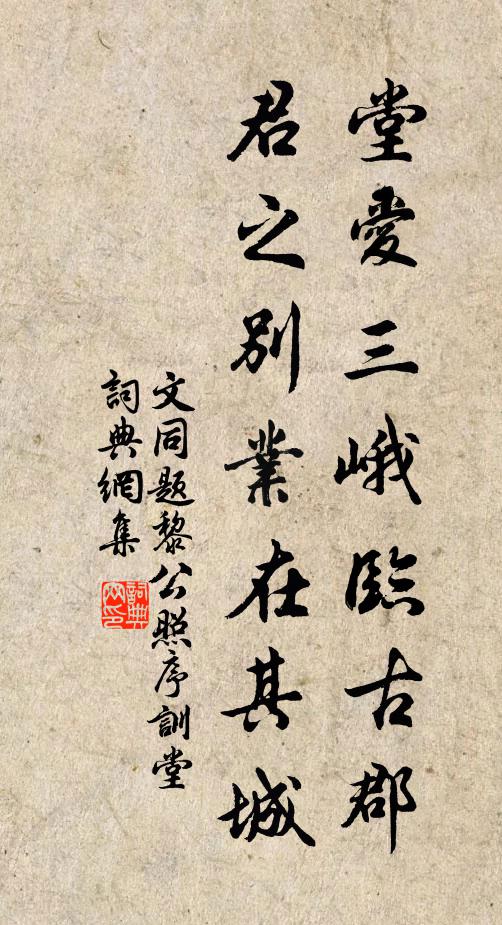 堂愛三峨臨古郡
君之別業在其城
文同題黎公照序訓堂
詞典網集
詞典网印